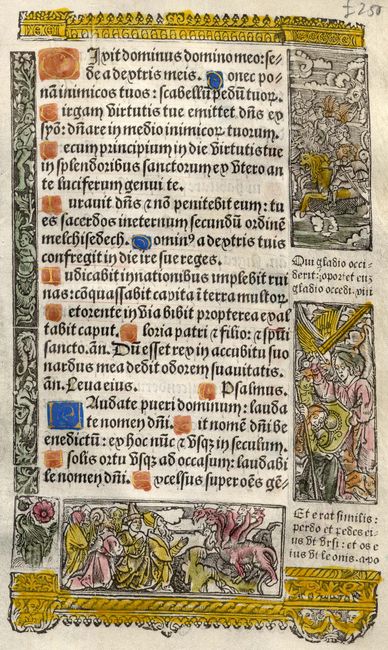 Dixit dominus domino meo: se-
de a dextris meis. Donec po-
nā inimicos tuos: scabellū pedū tuoꝝ.
Uirgam virtutis tue emittet dn̄s ex
syō: dn̄are in medio inimicoꝝ tuorum.
Tecum principium in die virtutis tue
in splendoribus sanctorum ex vtero an-
te luciferum genui te.
Iurauit dn̄s & nō penitebit eum: tu
es sacerdos ineternum secundū ordinē
melchisedech. Dominꝰ a dextris tuis
confregit in die ire sue reges.
Iudicabit in nationibus implebit rui
nas: cōquassabit capita ī terra multoꝝ.
De torrente in via bibit propterea exal
tabit caput. Gloria patri & filio: & spūi
sancto. an̄. Dum esset rex in accubitu suo
nardus mea dedit odorem suauitatis.
an̄. Leua eius. Psalmus.
Laudate pueri dominum: lauda
te nomen dn̄i. Sit nomē dn̄i be
nedictū: ex hoc nūc & vsq̄ in seculum.
A solis ortu vsq̄ ad occasum: laudabi
le nomen dn̄i. Excelsus super oēs gē-
Qui gladio occi-
derit: oportet eum
gladio occedi. xiii
Et erat similis
pardo et pedes ei-
us vt vrsi: et os e
ius vt leonis. apo
£250